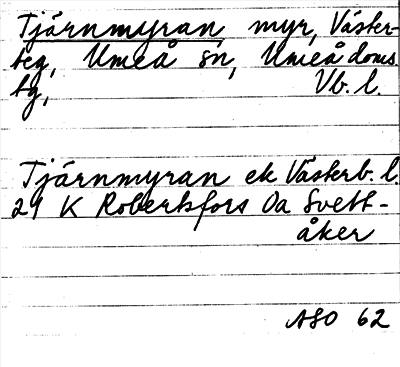 Tjärnmyran, myr, Väster-
teg, Umeå sn, Umeå doms.
tg, Vb. l.
Tjärnmyran ek Västerb. l.
21 K Robertsfors Oa Svett-
åker
ASO 62